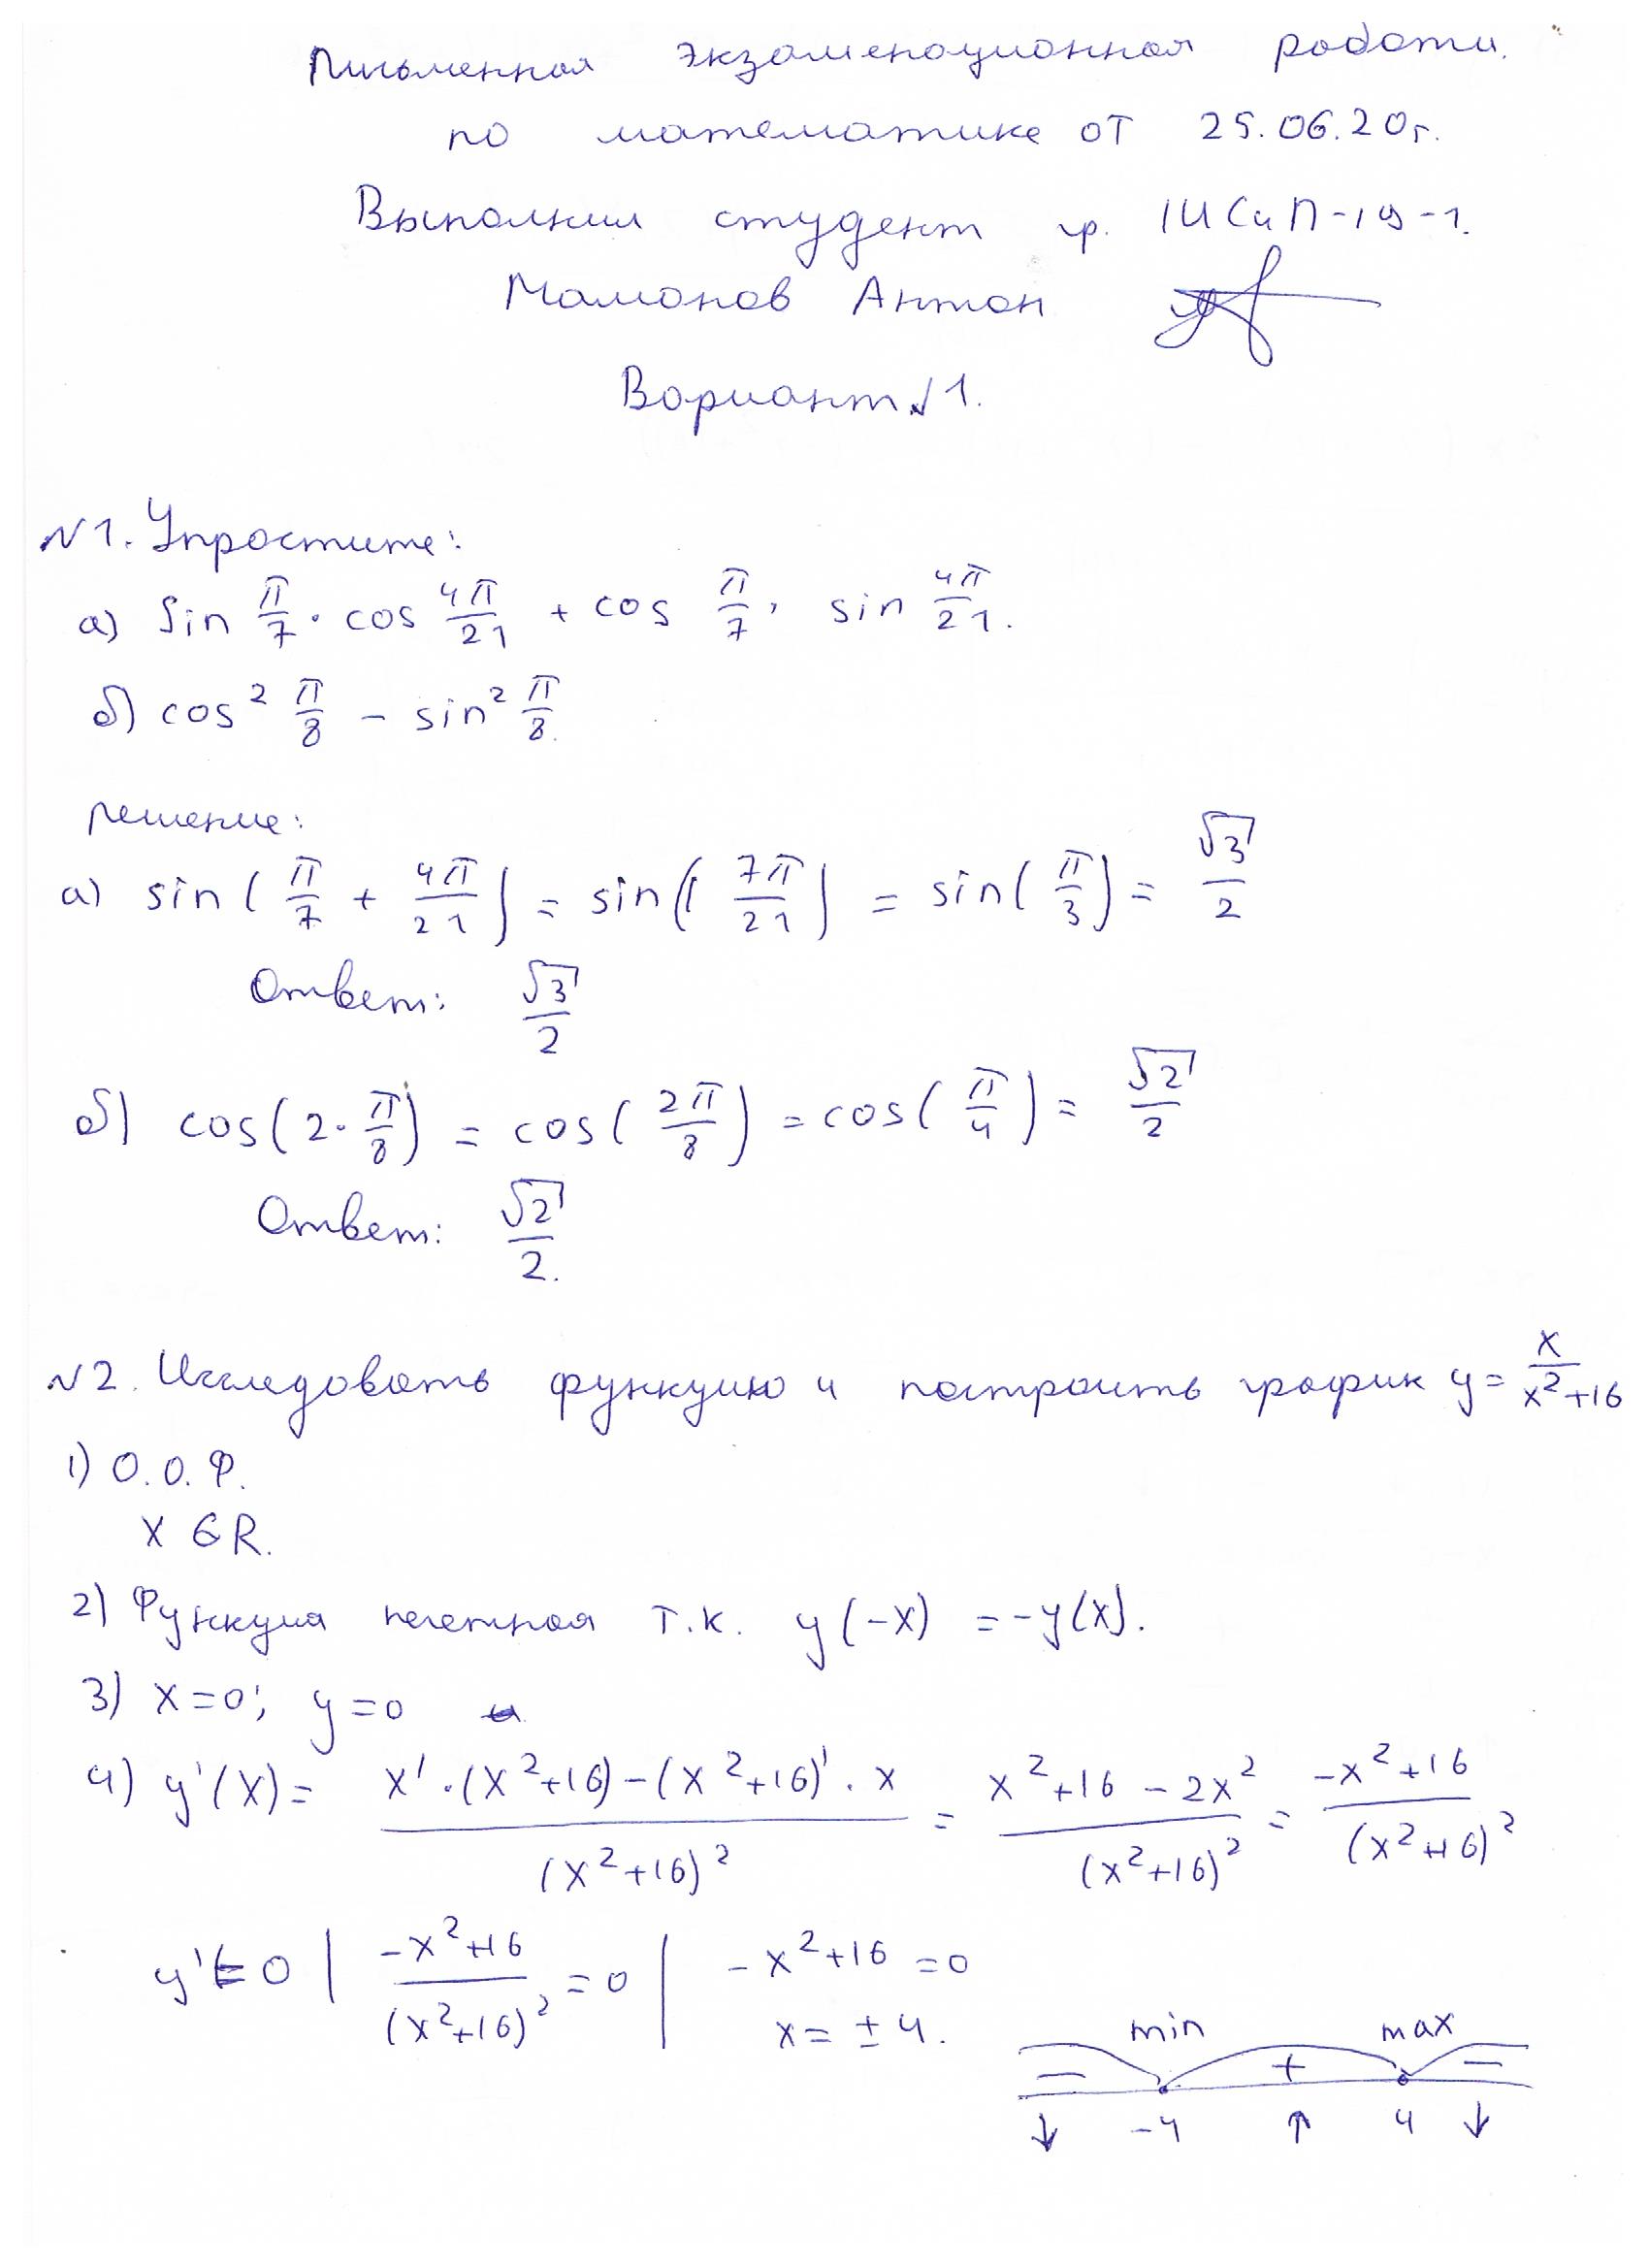 Письменная экзаменационная работа.
по математике от 25.06.20г.
Выполнил студент гр. 1ИСиП-19-1.
Мамонов Антон
Вариант №1.
№1. Упростите:
а) sin π/7 · cos 4π/21 + cos π/7 · sin 4π/21.
б) cos² π/8 - sin² π/8.
решение:
а) sin(π/7 + 4π/21) = sin(7π/21) = sin(π/3) = √3/2
Ответ: √3/2
б) cos(2·π/8) = cos(2π/8) = cos(π/4) = √2/2
Ответ: √2/2.
№2. Исследовать функцию и построить график y = x/(x²+16)
1) О.О.Ф.
x ∈ R.
2) Функция нечетная т.к. y(-x) = -y(x).
3) x=0; y=0
4) y'(x) = (x'·(x²+16)-(x²+16)'·x)/(x²+16)² = (x²+16-2x²)/(x²+16)² = (-x²+16)/(x²+16)²
y'=0 | (-x²+16)/(x²+16)² = 0 | -x²+16=0
x=±4.
min max
- + -
↓ -4 ↑ 4 ↓